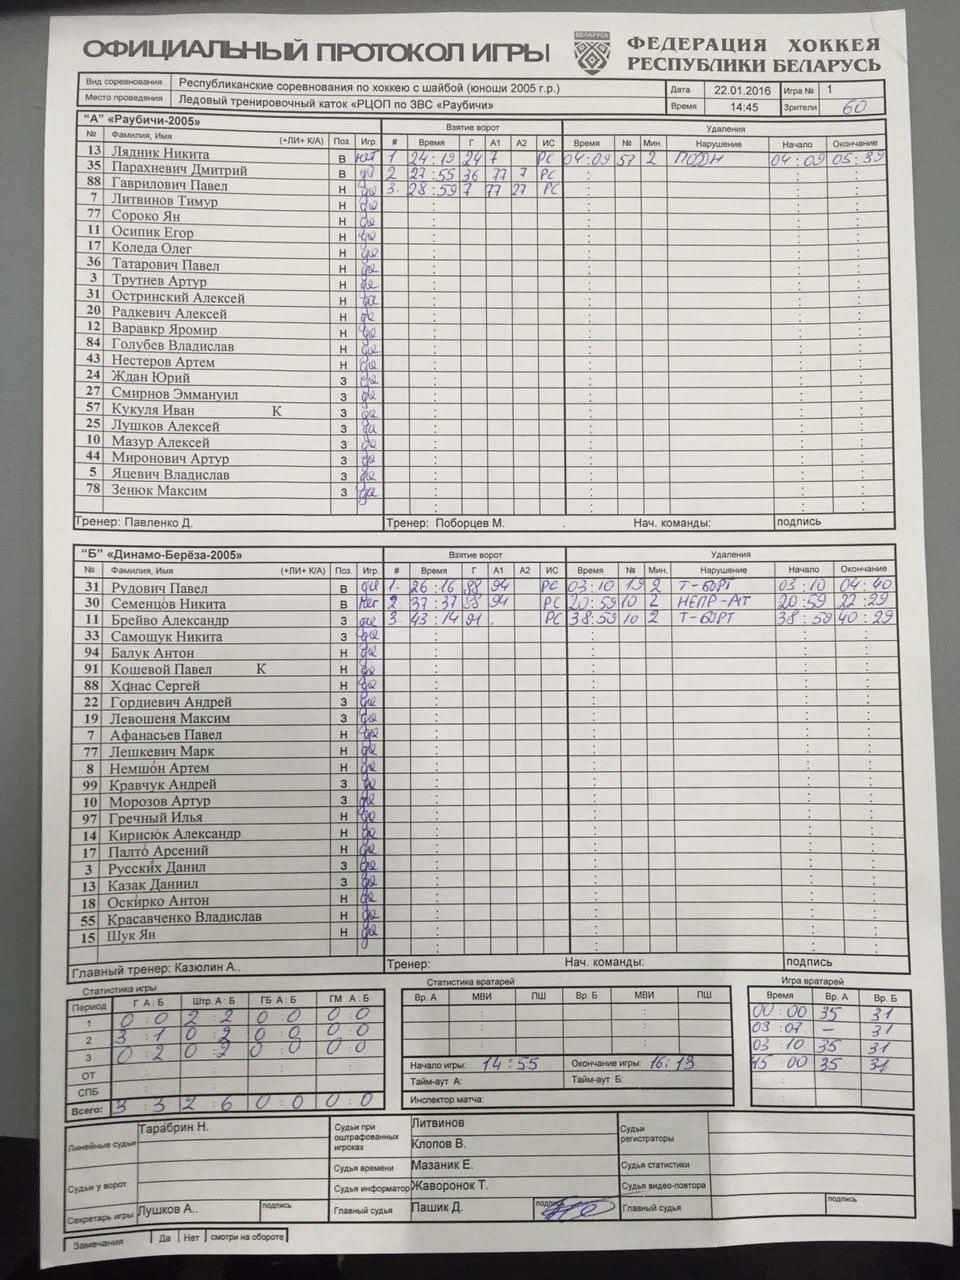 ОФИЦИАЛЬНЫЙ ПРОТОКОЛ ИГРЫ
БЕЛАРУСЬ
ФЕДЕРАЦИЯ ХОККЕЯ
РЕСПУБЛИКИ БЕЛАРУСЬ
Вид соревнования Республиканские соревнования по хоккею с шайбой (юноши 2005 г.р.) Дата 22.01.2016 Игра № 1
Место проведения Ледовый тренировочный каток «РЦОП по ЗВС «Раубичи» Время 14:45 Зрители 60
"А" «Раубичи-2005» Взятие ворот Удаления
№ Фамилия, Имя (+ЛИ+ К/А) Поз. Игр. # Время Г А1 А2 ИС Время № Мин. Нарушение Начало Окончание
13 Лядник Никита В нет 1 24:19 24 7 РС 04:09 57 2 ПОДН 04:09 05:39
35 Парахневич Дмитрий В да 2 27:55 36 77 7 РС
88 Гаврилович Павел Н да 3. 28:59 7 77 27 РС
7 Литвинов Тимур Н да
77 Сороко Ян Н да
11 Осипик Егор Н да
17 Коледа Олег Н да
36 Татарович Павел Н да
3 Трутнев Артур Н да
31 Остринский Алексей Н да
20 Радкевич Алексей Н да
12 Варавкр Яромир Н да
84 Голубев Владислав Н да
43 Нестеров Артем Н да
24 Ждан Юрий З да
27 Смирнов Эммануил З да
57 Кукуля Иван К З да
25 Лушков Алексей З да
10 Мазур Алексей З да
44 Миронович Артур З да
5 Яцевич Владислав З да
78 Зенюк Максим З да
Тренер: Павленко Д. Тренер: Поборцев М. Нач. команды: подпись
"Б" «Динамо-Берёза-2005» Взятие ворот Удаления
№ Фамилия, Имя (+ЛИ+ К/А) Поз. Игр. # Время Г А1 А2 ИС Время № Мин. Нарушение Начало Окончание
31 Рудович Павел В да 1. 26:16 88 94 РС 03:10 19 2 Т-БОРТ 03:10 04:40
30 Семенцов Никита В нет 2. 37:37 94 РС 20:59 10 2 НЕПР-АТ 20:59 22:29
11 Брейво Александр З да 3. 43:14 91 РС 38:59 10 2 Т-БОРТ 38:59 40:29
33 Самощук Никита Н да
94 Балук Антон Н да
91 Кошевой Павел К Н да
88 Хонас Сергей Н да
22 Гордиевич Андрей З да
19 Левошеня Максим З да
7 Афанасьев Павел Н да
77 Лешкевич Марк Н да
8 Немшон Артем Н да
99 Кравчук Андрей З да
10 Морозов Артур З да
97 Гречный Илья Н да
14 Кирисюк Александр Н да
17 Палто Арсений Н да
3 Русских Данил З да
13 Казак Даниил З да
18 Оскирко Антон Н да
55 Красавченко Владислав Н да
15 Шук Ян Н да
Главный тренер: Казюлин А.. Тренер: Нач. команды: подпись
Статистика игры Статистика вратарей Игра вратарей
Период Г А : Б Штр. А : Б ГБ А : Б ГМ А : Б Вр. А МВИ ПШ Вр. Б МВИ ПШ Время Вр. А Вр. Б
1 0:0 2:2 0:0 0:0 00:00 35 31
2 3:1 0:2 0:0 0:0 03:07 – 31
3 0:2 0:2 0:0 0:0 03:10 35 31
ОТ Начало игры: 14:55 Окончание игры: 16:13 45:00 35 31
СПБ Тайм-аут А: Тайм-аут Б:
Всего: 3:3 2:6 0:0 0:0 Инспектор матча:
Линейные судьи Тарабрин Н. Судьи при оштрафованных игроках Литвинов Судьи регистраторы
Клопов В.
Судьи у ворот Судья времени Мазаник Е. Судья статистики
Судья информатор Жаворонок Т. Судья видео-повтора
Секретарь игры Лушков А.. подпись Главный судья Пашик Д. подпись Главный судья подпись
Замечания Да Нет смотри на обороте